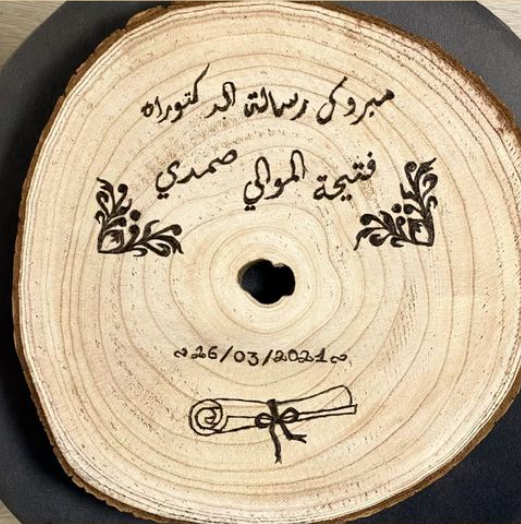 مبروك رسالة الدكتوراه
فتيحة الموالي صمدي
~26/03/2021~